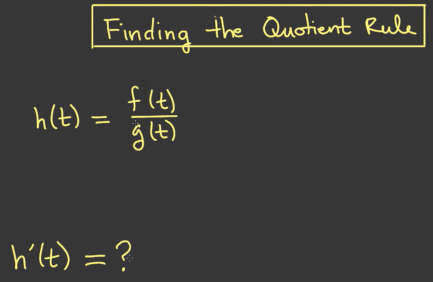 Finding the Quotient Rule
h(t) = f(t)/g(t)
h'(t) = ?